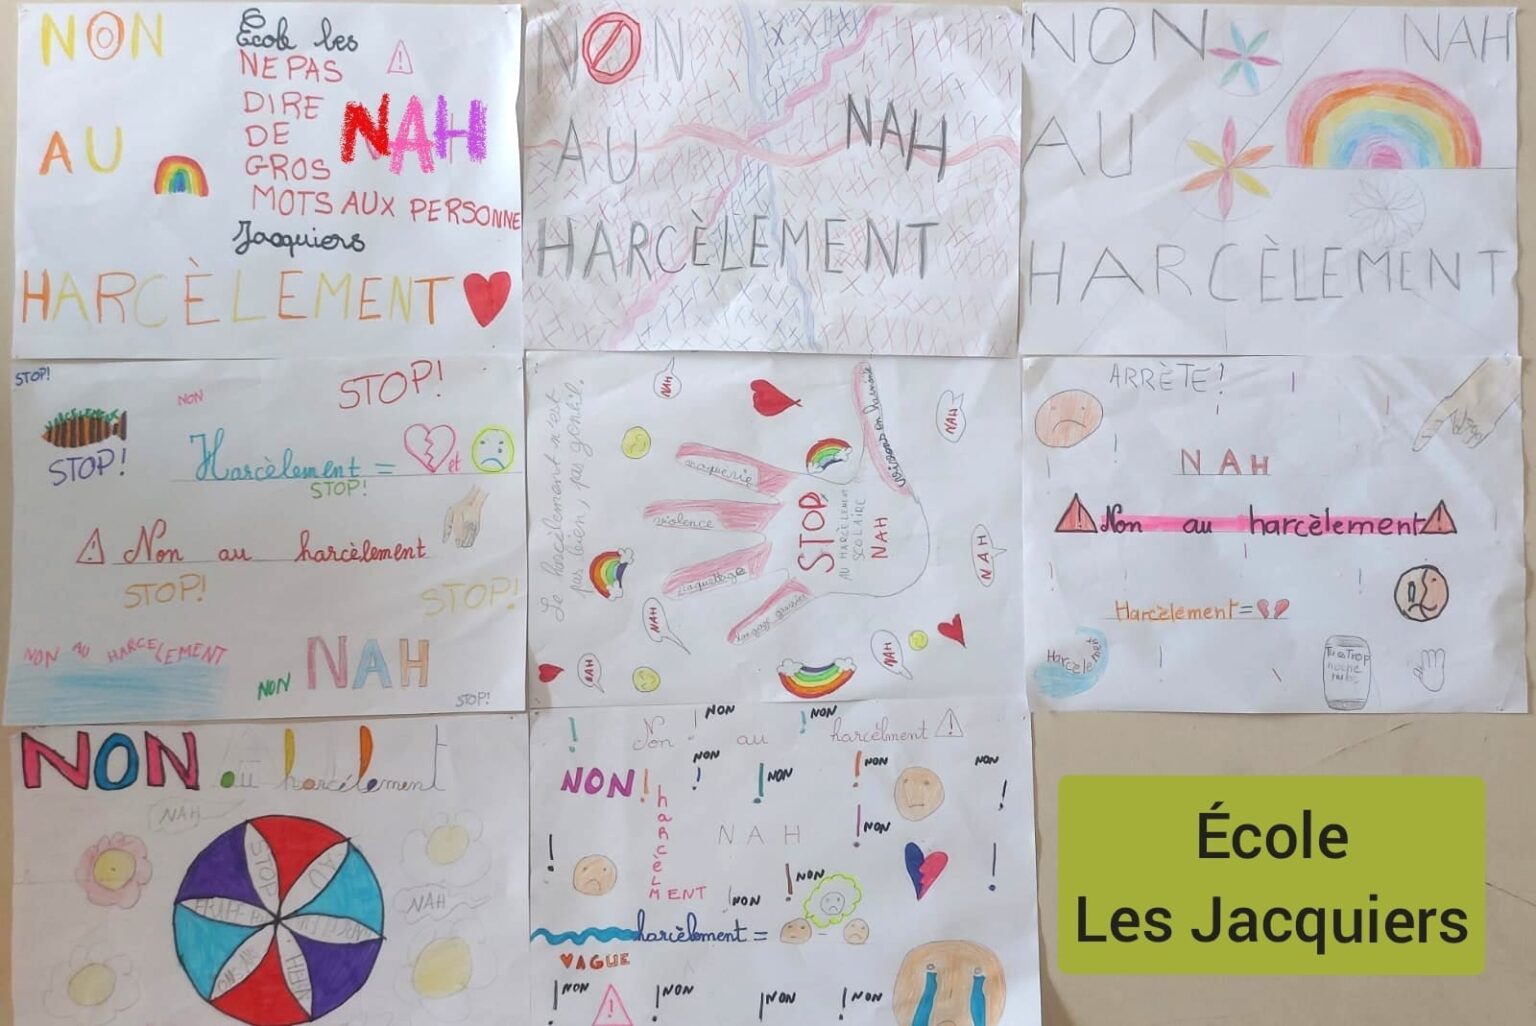 NON
AU
HARCÈLEMENT
École les
NE PAS
DIRE
DE
GROS
MOTS AUX PERSONNE
Jacquiers
NAH
NON
AU
NAH
HARCÈLEMENT
NON
NAH
AU
HARCÈLEMENT
STOP!
NON
STOP!
HARCELEMENT
STOP!
Harcèlement =
et
STOP!
Non au harcèlement
STOP!
STOP!
NON AU HARCELEMENT
NON
NAH
STOP!
Le harcèlement n'est
pas bien, pas gentil.
NAH
NAH
NAH
NAH
NAH
NAH
violence
STOP
AU HARCÈLEMENT
SCOLAIRE
NAH
ARRÈTE!
NAH
Non au harcèlement
Harcèlement =
Harcelement
NON au harcélement
NAH
NAH
STOP
AU
Non au harcélment
NON
NON
NON
NON!
NON
NON
NON
harcèlMENT
NAH
NON
NON
NON
harcèlement =
VAGUE
NON
NON
NON
NON
École
Les Jacquiers